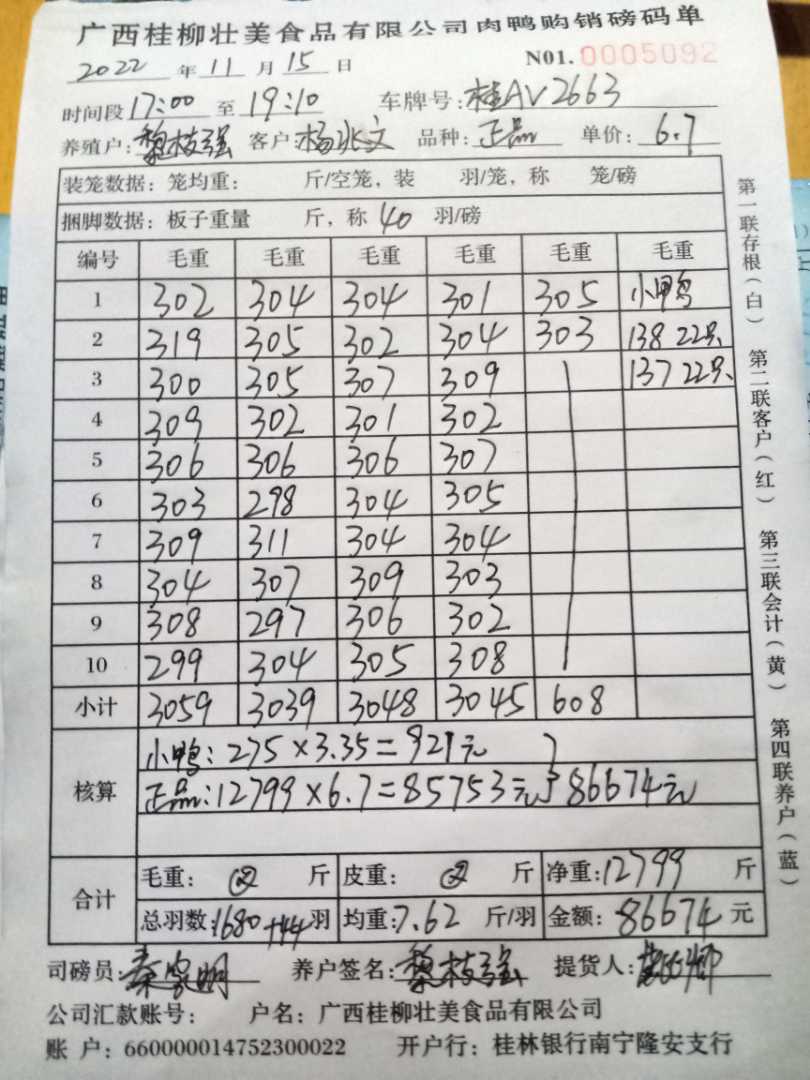 广西桂柳壮美食品有限公司肉鸭购销磅码单
2022 年 11 月 15 日 N01. 0005092
时间段 17:00 至 19:10 车牌号: 桂AV2663
养殖户: 黎枝强 客户: 杨兆文 品种: 正品 单价: 6.7
装笼数据: 笼均重: 斤/空笼, 装 羽/笼, 称 笼/磅
捆脚数据: 板子重量 斤, 称 40 羽/磅
编号 毛重 毛重 毛重 毛重 毛重 毛重
1 302 304 304 301 305 小鸭
2 319 305 302 304 303 138 22只
3 300 305 307 309 137 22只
4 309 302 301 302
5 306 306 306 307
6 303 298 304 305
7 309 311 304 304
8 304 307 309 303
9 308 297 306 302
10 299 304 305 308
小计 3059 3039 3048 3045 608
核算 小鸭: 275×3.35=921元
正品: 12799×6.7=85753元 } 86674元
合计 毛重: 斤 皮重: 斤 净重: 12799 斤
总羽数: 1680+44 羽 均重: 7.62 斤/羽 金额: 86674 元
司磅员: 秦家明 养户签名: 黎枝强 提货人:
公司汇款账号: 户名: 广西桂柳壮美食品有限公司
账 户: 660000014752300022 开户行: 桂林银行南宁隆安支行
第一联存根(白) 第二联客户(红) 第三联会计(黄) 第四联养户(蓝)